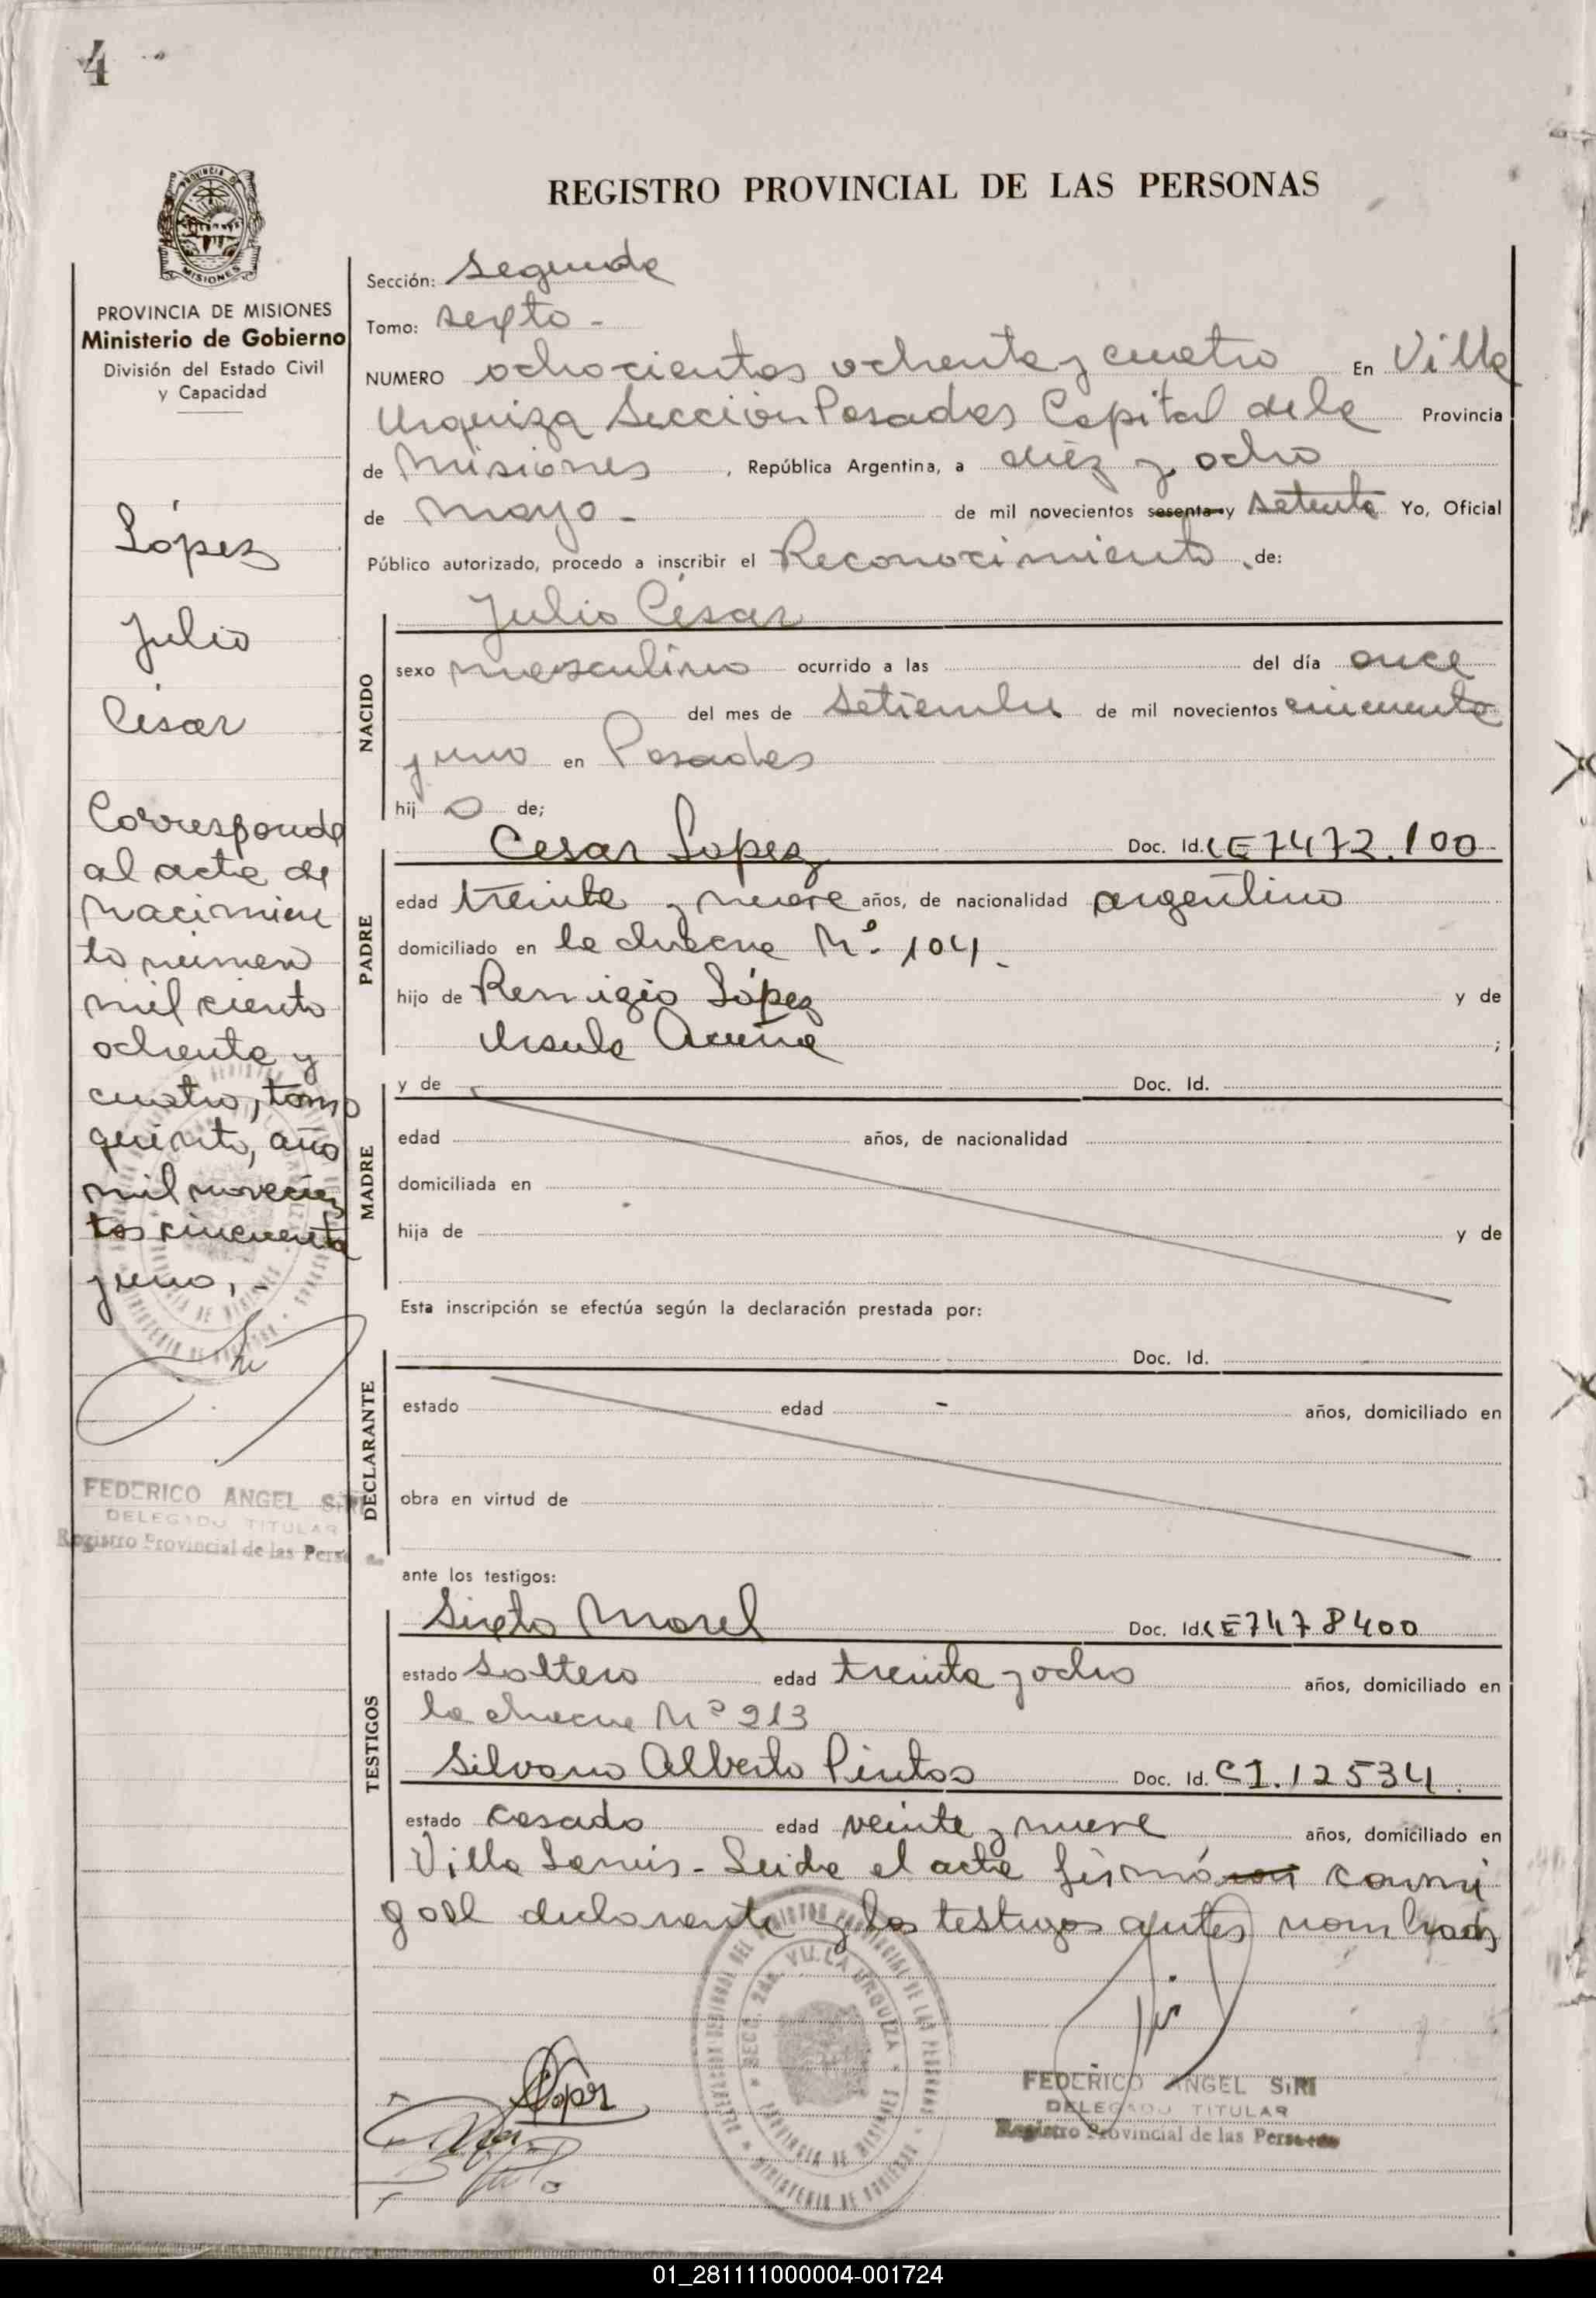 4
REGISTRO PROVINCIAL DE LAS PERSONAS
PROVINCIA DE MISIONES
Ministerio de Gobierno
División del Estado Civil
y Capacidad
López
Julio
César
Corresponde
al acta de
Nacimien
to número
mil ciento
ochenta y
cuatro, tomo
quinto, año
mil novecien
tos cincuenta
y uno, -
FEDERICO ANGEL SIRI
DELEGADO TITULAR
Registro Provincial de las Personas
Sección: Segunda
Tomo: sexto -
NUMERO ochocientos ochenta y cuatro En Villa
Urquiza Sección Posadas Capital de la Provincia
de Misiones , República Argentina, a diez y ocho
de mayo - de mil novecientos sesenta y setenta Yo, Oficial
Público autorizado, procedo a inscribir el Reconocimiento, de:
NACIDO
Julio César
sexo masculino ocurrido a las del día once
del mes de setiembre de mil novecientos cincuenta
y uno en Posadas
hij o de;
PADRE
Cesar Lopez Doc. Id. CE 7472.100
edad treinta y nueve años, de nacionalidad argentino
domiciliado en la chacra Nº 104.
hijo de Remigio López y de
Ursula Acuña ;
MADRE
y de Doc. Id.
edad años, de nacionalidad
domiciliada en
hija de y de
Esta inscripción se efectúa según la declaración prestada por:
DECLARANTE
Doc. Id.
estado edad - años, domiciliado en
obra en virtud de
ante los testigos:
TESTIGOS
Sixto Morel Doc. Id. CE 7478400
estado soltero edad treinta y ocho años, domiciliado en
la chacra Nº 213
Silvano Alberto Pintos Doc. Id. CI. 12534.
estado casado edad veinte y nueve años, domiciliado en
Villa Lanús - Leida el acta firmó conmi
go el declarante y los testigos antes nombrados
SECC. 2da. VILLA URQUIZA
PROVINCIA DE MISIONES
MINISTERIO DE GOBIERNO
FEDERICO ANGEL SIRI
DELEGADO TITULAR
Registro Provincial de las Personas
01_281111000004-001724